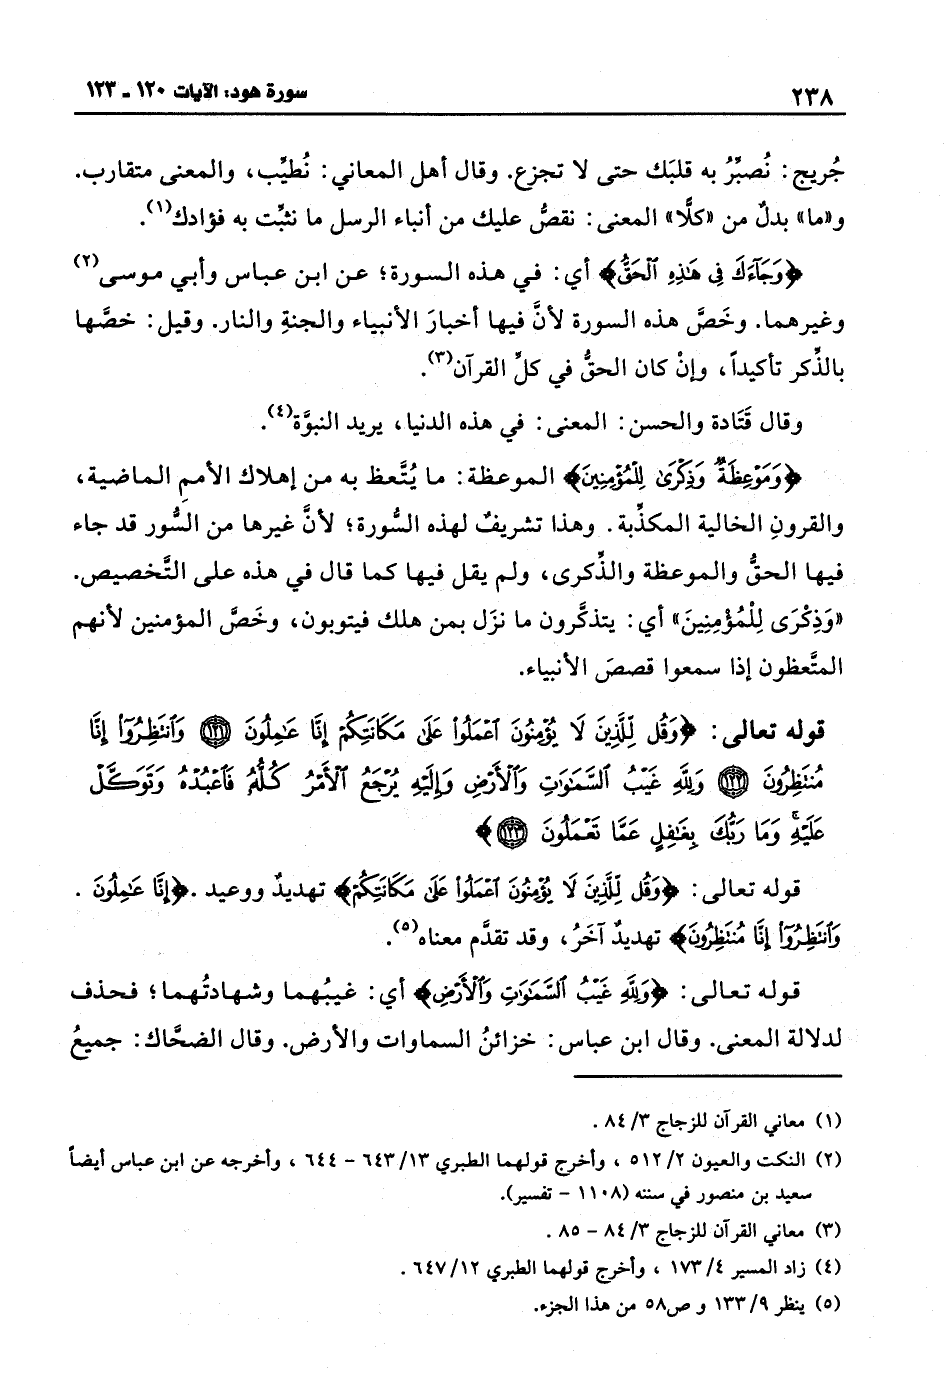 ٢٣٨ سورة هود: الآيات ١٢٠ - ١٢٣
جُريج: نُصبِّرُ به قلبَك حتى لا تجزع. وقال أهل المعاني: نُطيِّب، والمعنى متقارب.
و«ما» بدلٌ من «كلًّا» المعنى: نقصُّ عليك من أنباء الرسل ما نثبِّت به فؤادك(١).
﴿وَجَآءَكَ فِى هَٰذِهِ ٱلْحَقُّ﴾ أي: في هذه السورة؛ عن ابن عباس وأبي موسى(٢)
وغيرهما. وخَصَّ هذه السورة لأنَّ فيها أخبارَ الأنبياء والجنةِ والنار. وقيل: خصَّها
بالذِّكر تأكيداً، وإنْ كان الحقُّ في كلِّ القرآن(٣).
وقال قَتَادة والحسن: المعنى: في هذه الدنيا، يريد النبوَّة(٤).
﴿وَمَوْعِظَةٌ وَذِكْرَىٰ لِلْمُؤْمِنِينَ﴾ الموعظة: ما يُتَّعظ به من إهلاك الأممِ الماضية،
والقرونِ الخالية المكذِّبة. وهذا تشريفٌ لهذه السُّورة؛ لأنَّ غيرها من السُّور قد جاء
فيها الحقُّ والموعظة والذِّكرى، ولم يقل فيها كما قال في هذه على التَّخصيص.
«وَذِكْرَى لِلْمُؤْمِنِينَ» أي: يتذكَّرون ما نزَل بمن هلك فيتوبون، وخَصَّ المؤمنين لأنهم
المتَّعظون إذا سمعوا قصصَ الأنبياء.
قوله تعالى: ﴿وَقُل لِّلَّذِينَ لَا يُؤْمِنُونَ ٱعْمَلُوا۟ عَلَىٰ مَكَانَتِكُمْ إِنَّا عَٰمِلُونَ ١٢١ وَٱنتَظِرُوٓا۟ إِنَّا
مُنتَظِرُونَ ١٢٢ وَلِلَّهِ غَيْبُ ٱلسَّمَٰوَٰتِ وَٱلْأَرْضِ وَإِلَيْهِ يُرْجَعُ ٱلْأَمْرُ كُلُّهُۥ فَٱعْبُدْهُ وَتَوَكَّلْ
عَلَيْهِ ۚ وَمَا رَبُّكَ بِغَٰفِلٍ عَمَّا تَعْمَلُونَ ١٢٣﴾
قوله تعالى: ﴿وَقُل لِّلَّذِينَ لَا يُؤْمِنُونَ ٱعْمَلُوا۟ عَلَىٰ مَكَانَتِكُمْ﴾ تهديدٌ ووعيد. ﴿إِنَّا عَٰمِلُونَ .
وَٱنتَظِرُوٓا۟ إِنَّا مُنتَظِرُونَ﴾ تهديدٌ آخَرُ، وقد تقدَّم معناه(٥).
قوله تعالى: ﴿وَلِلَّهِ غَيْبُ ٱلسَّمَٰوَٰتِ وَٱلْأَرْضِ﴾ أي: غيبُهما وشهادتُهما؛ فحذف
لدلالة المعنى. وقال ابن عباس: خزائنُ السماوات والأرض. وقال الضحَّاك: جميعُ
(١) معاني القرآن للزجاج ٨٤/٣ .
(٢) النكت والعيون ٥١٢/٢ ، وأخرج قولهما الطبري ٦٤٣/١٣ - ٦٤٤ ، وأخرجه عن ابن عباس أيضاً
سعيد بن منصور في سننه (١١٠٨ - تفسير).
(٣) معاني القرآن للزجاج ٨٤/٣ - ٨٥ .
(٤) زاد المسير ١٧٣/٤ ، وأخرج قولهما الطبري ٦٤٧/١٢ .
(٥) ينظر ١٣٣/٩ و ص٥٨ من هذا الجزء.